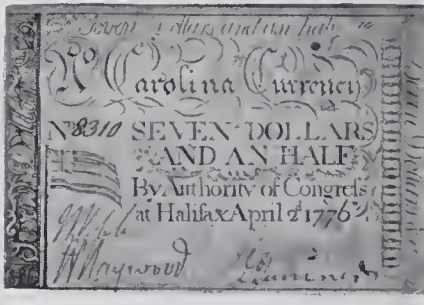 Seven Dollars and an half
No Carolina Currency
No 8310 SEVEN DOLLARS
AND AN HALF
By Authority of Congress
at Halifax April 2d 1776
W Haywood